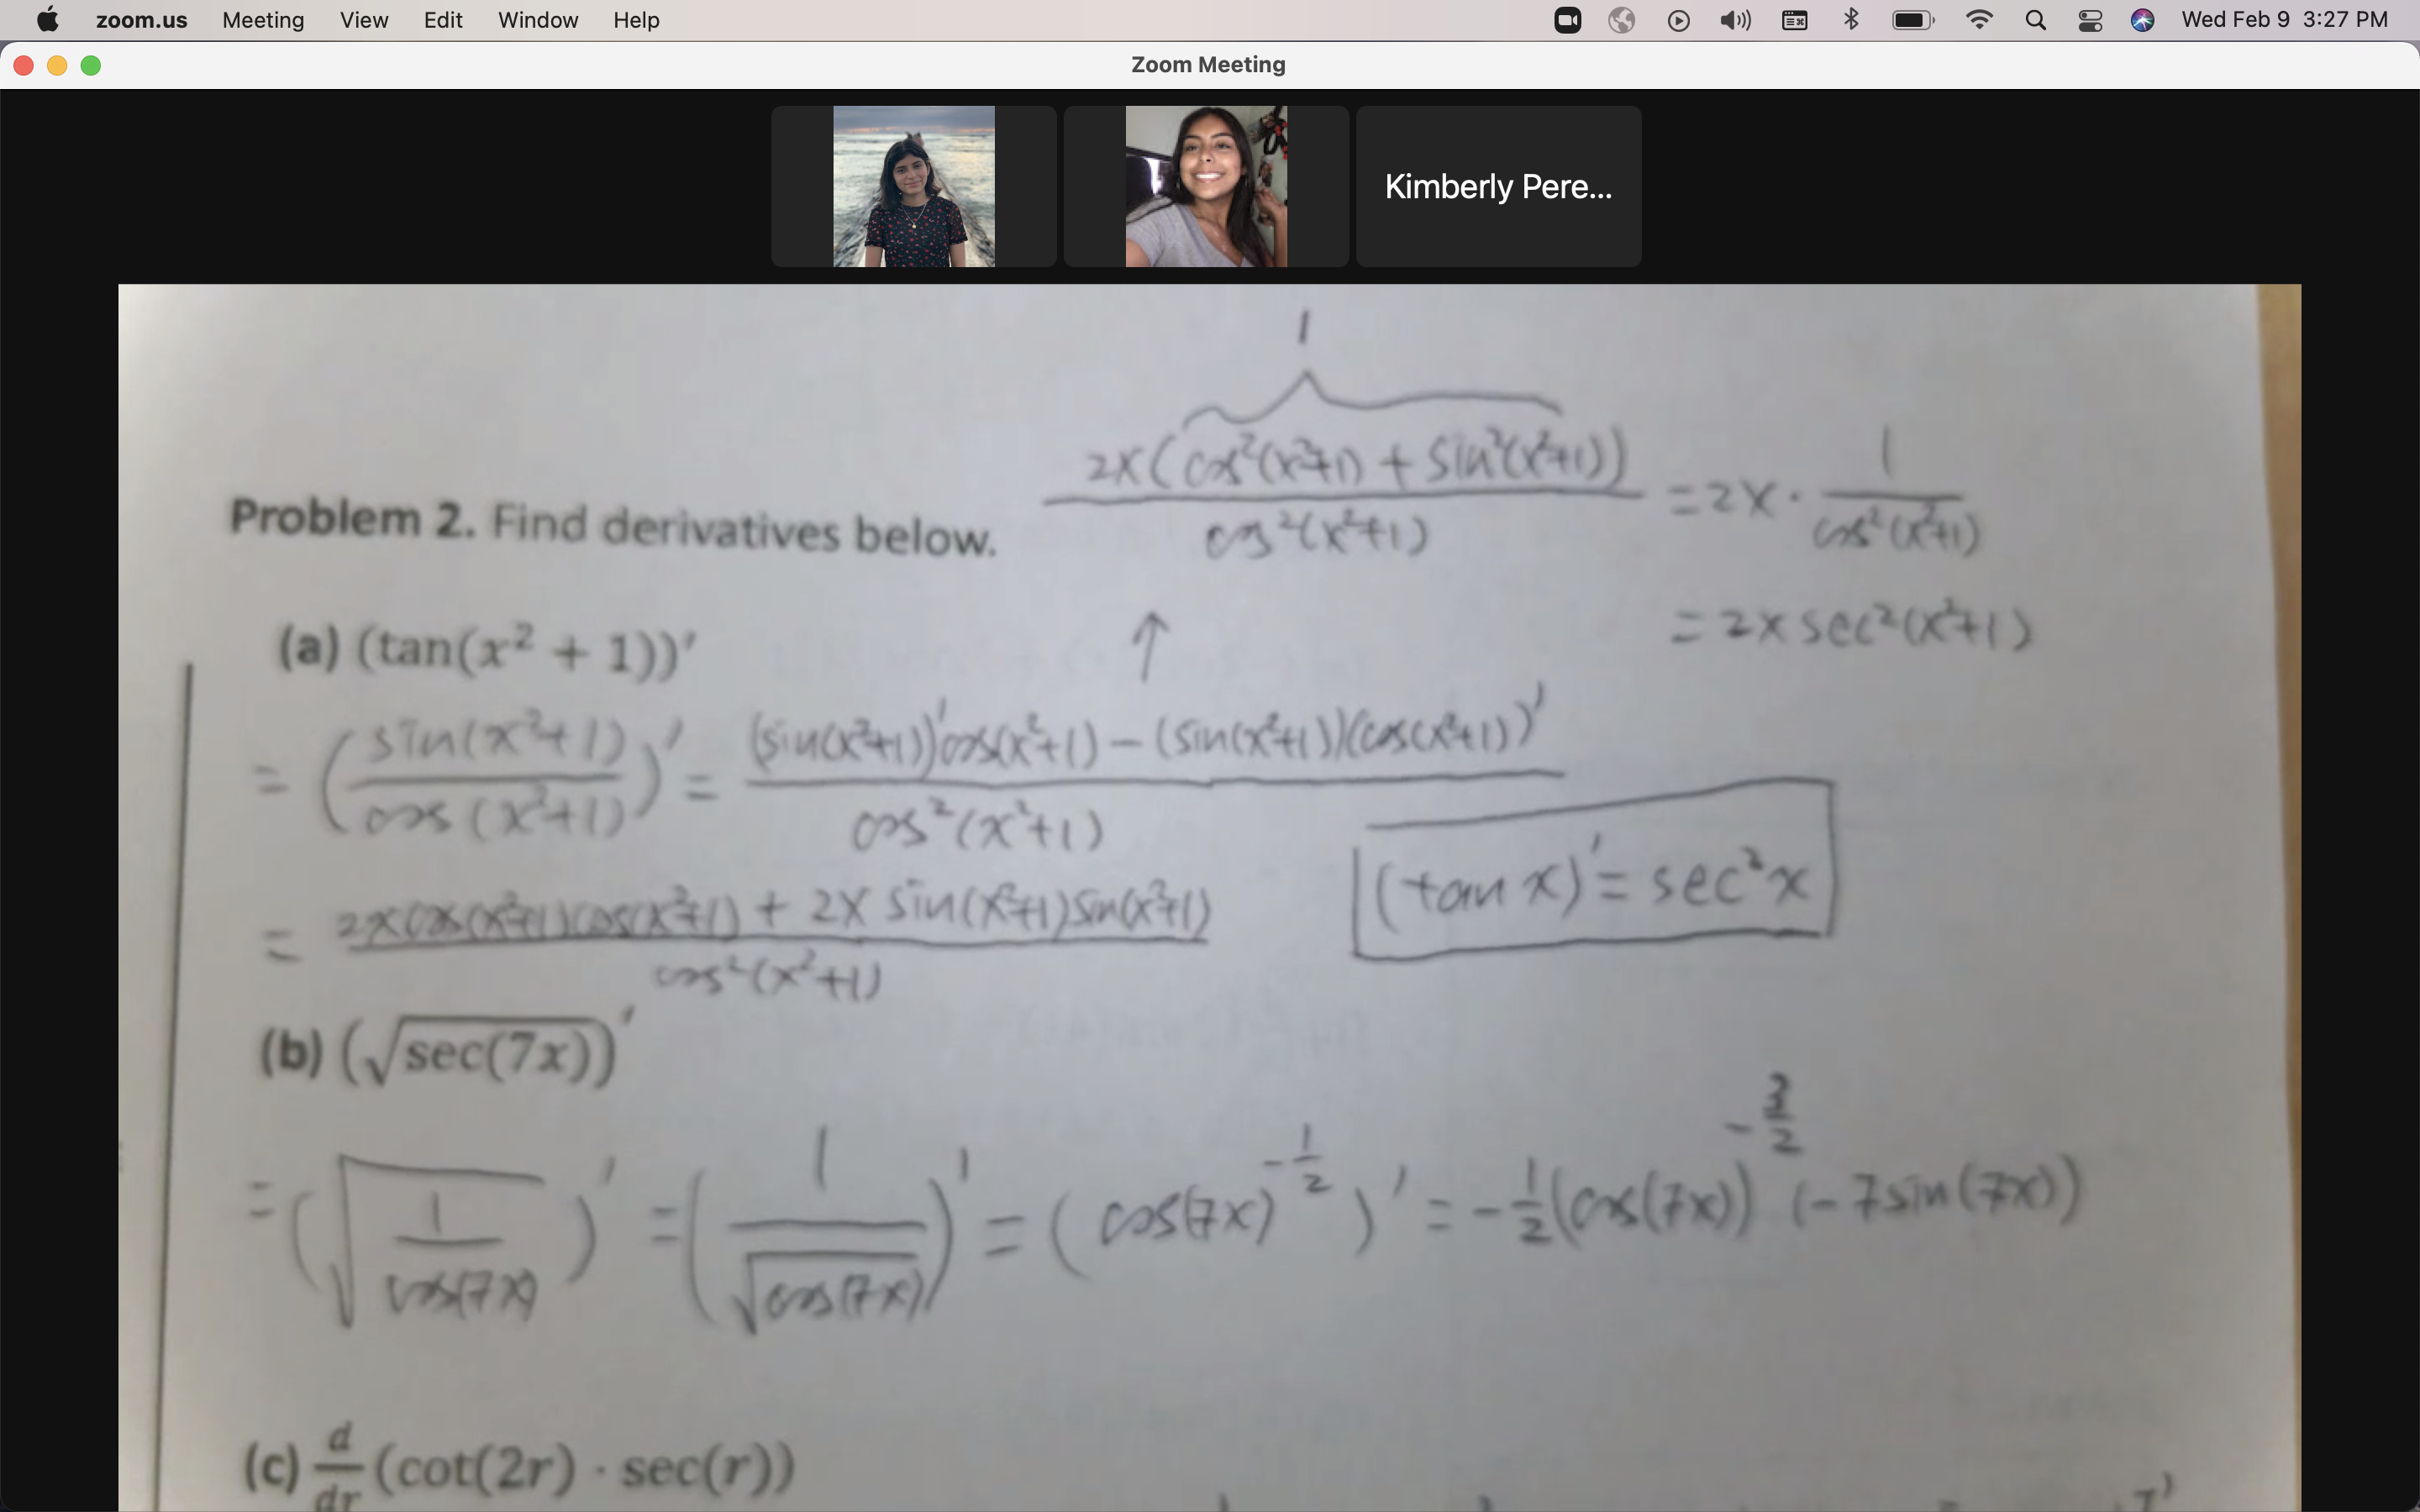 zoom.us Meeting View Edit Window Help Wed Feb 9 3:27 PM
Zoom Meeting
Kimberly Pere...
1
2x(cos²(x²+1) + sin²(x²+1)) / cos²(x²+1) = 2x · 1 / cos²(x²+1)
Problem 2. Find derivatives below.
= 2x sec²(x²+1)
(a) (tan(x² + 1))′
↑
= (sin(x²+1) / cos(x²+1))′ = (sin(x²+1))′cos(x²+1) − (sin(x²+1))(cos(x²+1))′ / cos²(x²+1)
(tan x)′ = sec²x
= 2x cos(x²+1)cos(x²+1) + 2x sin(x²+1)sin(x²+1) / cos²(x²+1)
(b) (√sec(7x))′
= (√(1 / cos(7x)))′ = (1 / √cos(7x))′ = (cos(7x)^(-1/2))′ = -1/2(cos(7x))^(-3/2) (-7sin(7x))
(c) d/dr (cot(2r) · sec(r))